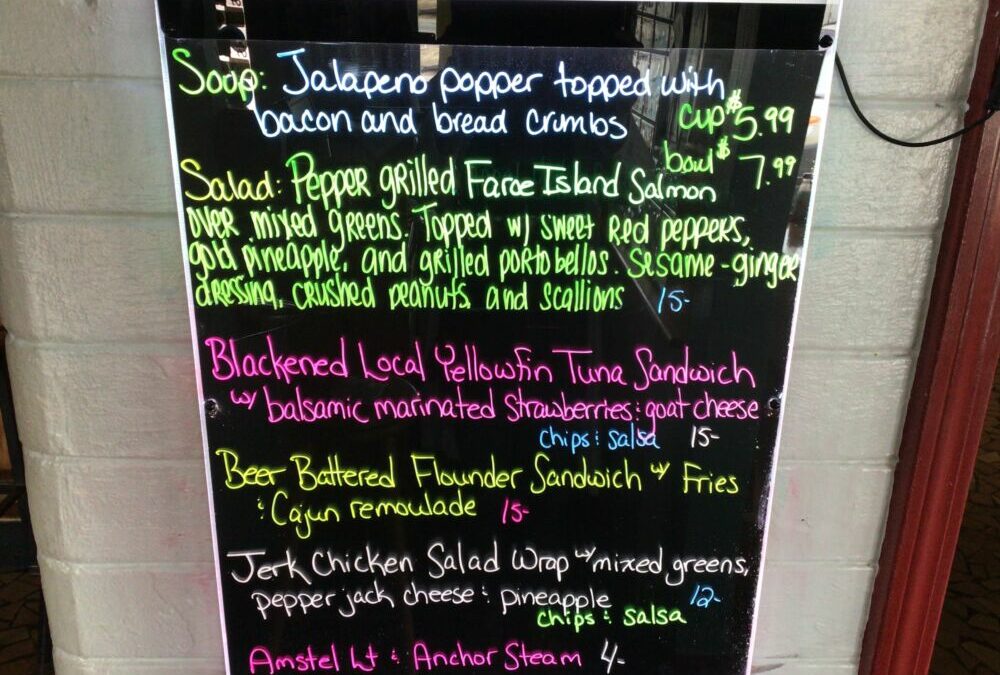 Soup: Jalapeno popper topped with
bacon and bread crumbs cup $5.99
bowl $7.99
Salad: Pepper grilled Faroe Island Salmon
over mixed greens. Topped w/ sweet red peppers,
gold pineapple, and grilled portobellos. Sesame-ginger
dressing, crushed peanuts and scallions 15-
Blackened Local Yellowfin Tuna Sandwich
w/ balsamic marinated strawberries & goat cheese
chips & salsa 15-
Beer Battered Flounder Sandwich w/ Fries
& Cajun remoulade 15-
Jerk Chicken Salad Wrap w/ mixed greens,
pepper jack cheese & pineapple 12-
chips & salsa
Amstel Lt & Anchor Steam 4-